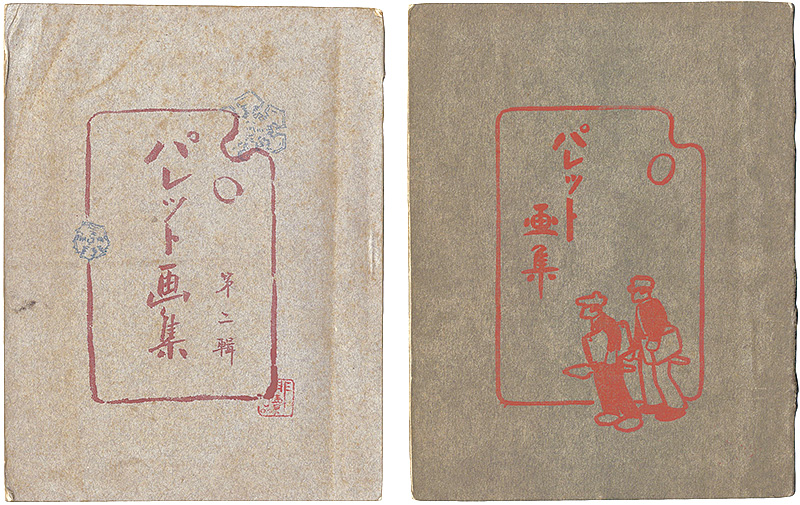 パレット画集
第二輯
非賣品
パレット
画集